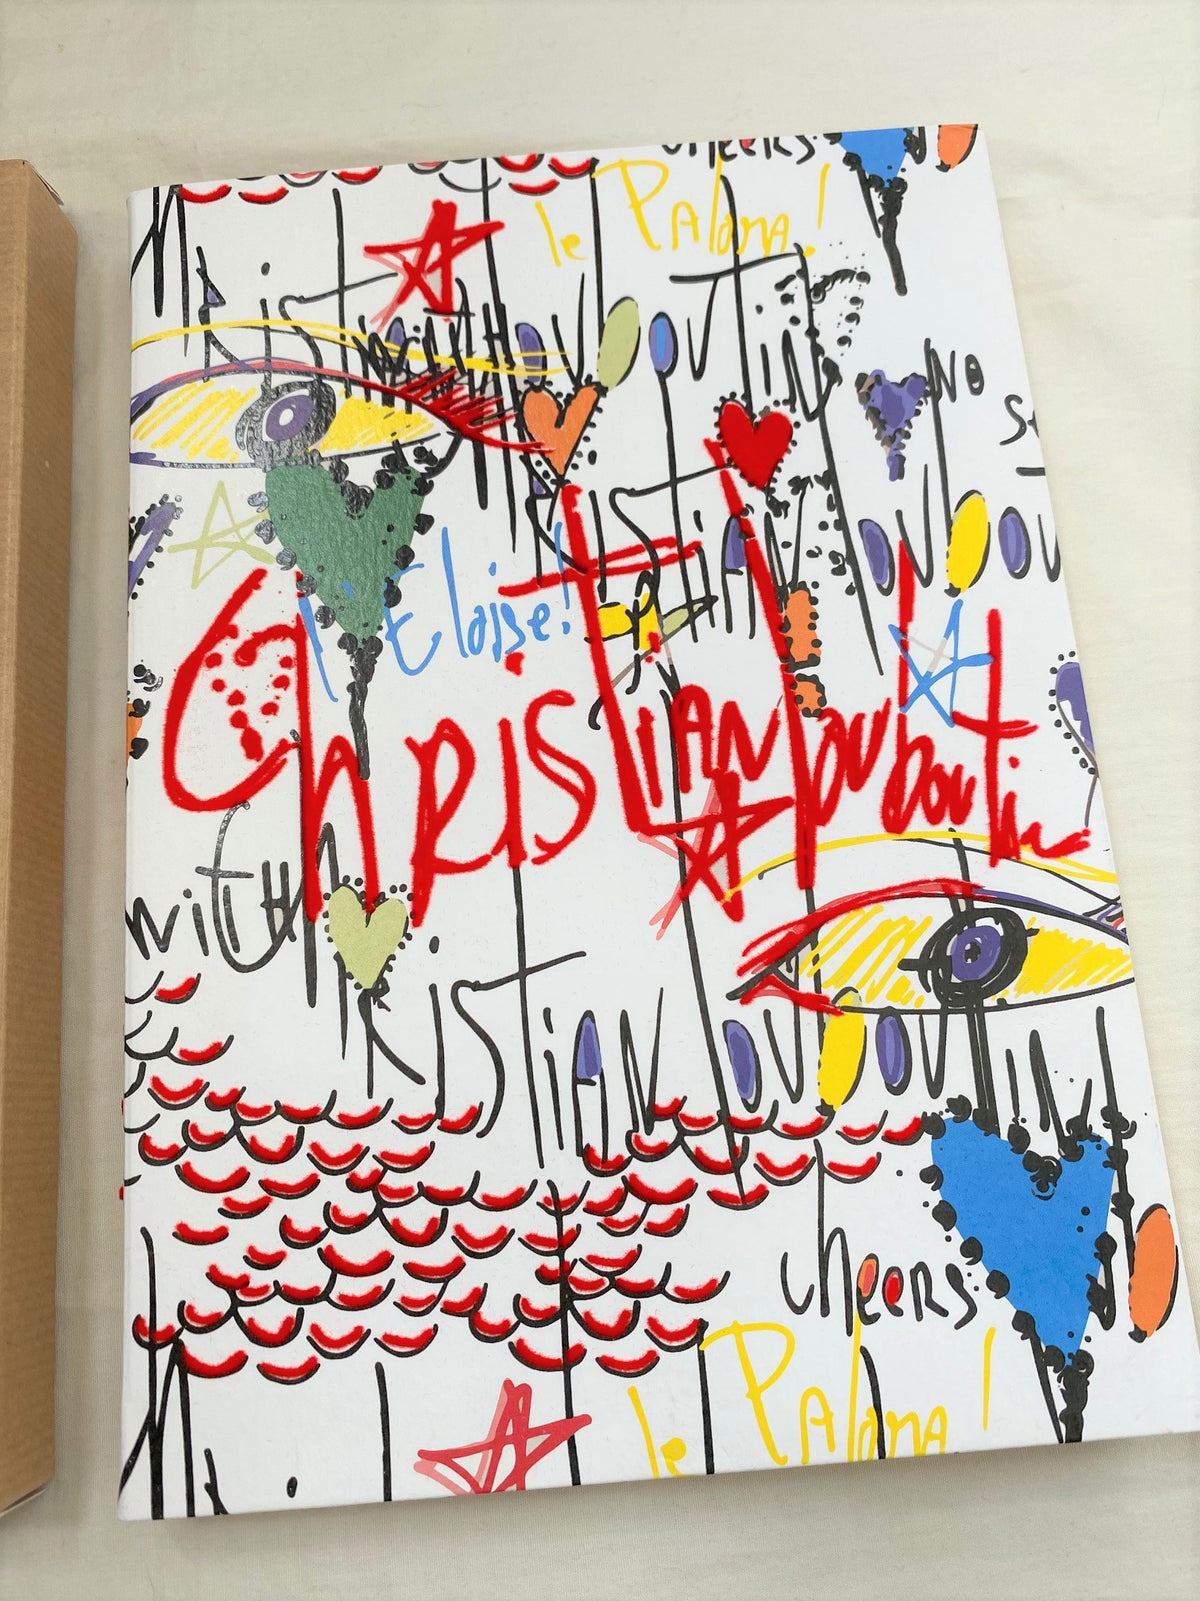 cheers
le Paloma!
Christian Louboutin
No
Christian Louboutin
l'Eloise!
Christian Louboutin
with
Christian Louboutin
cheers
le Paloma!